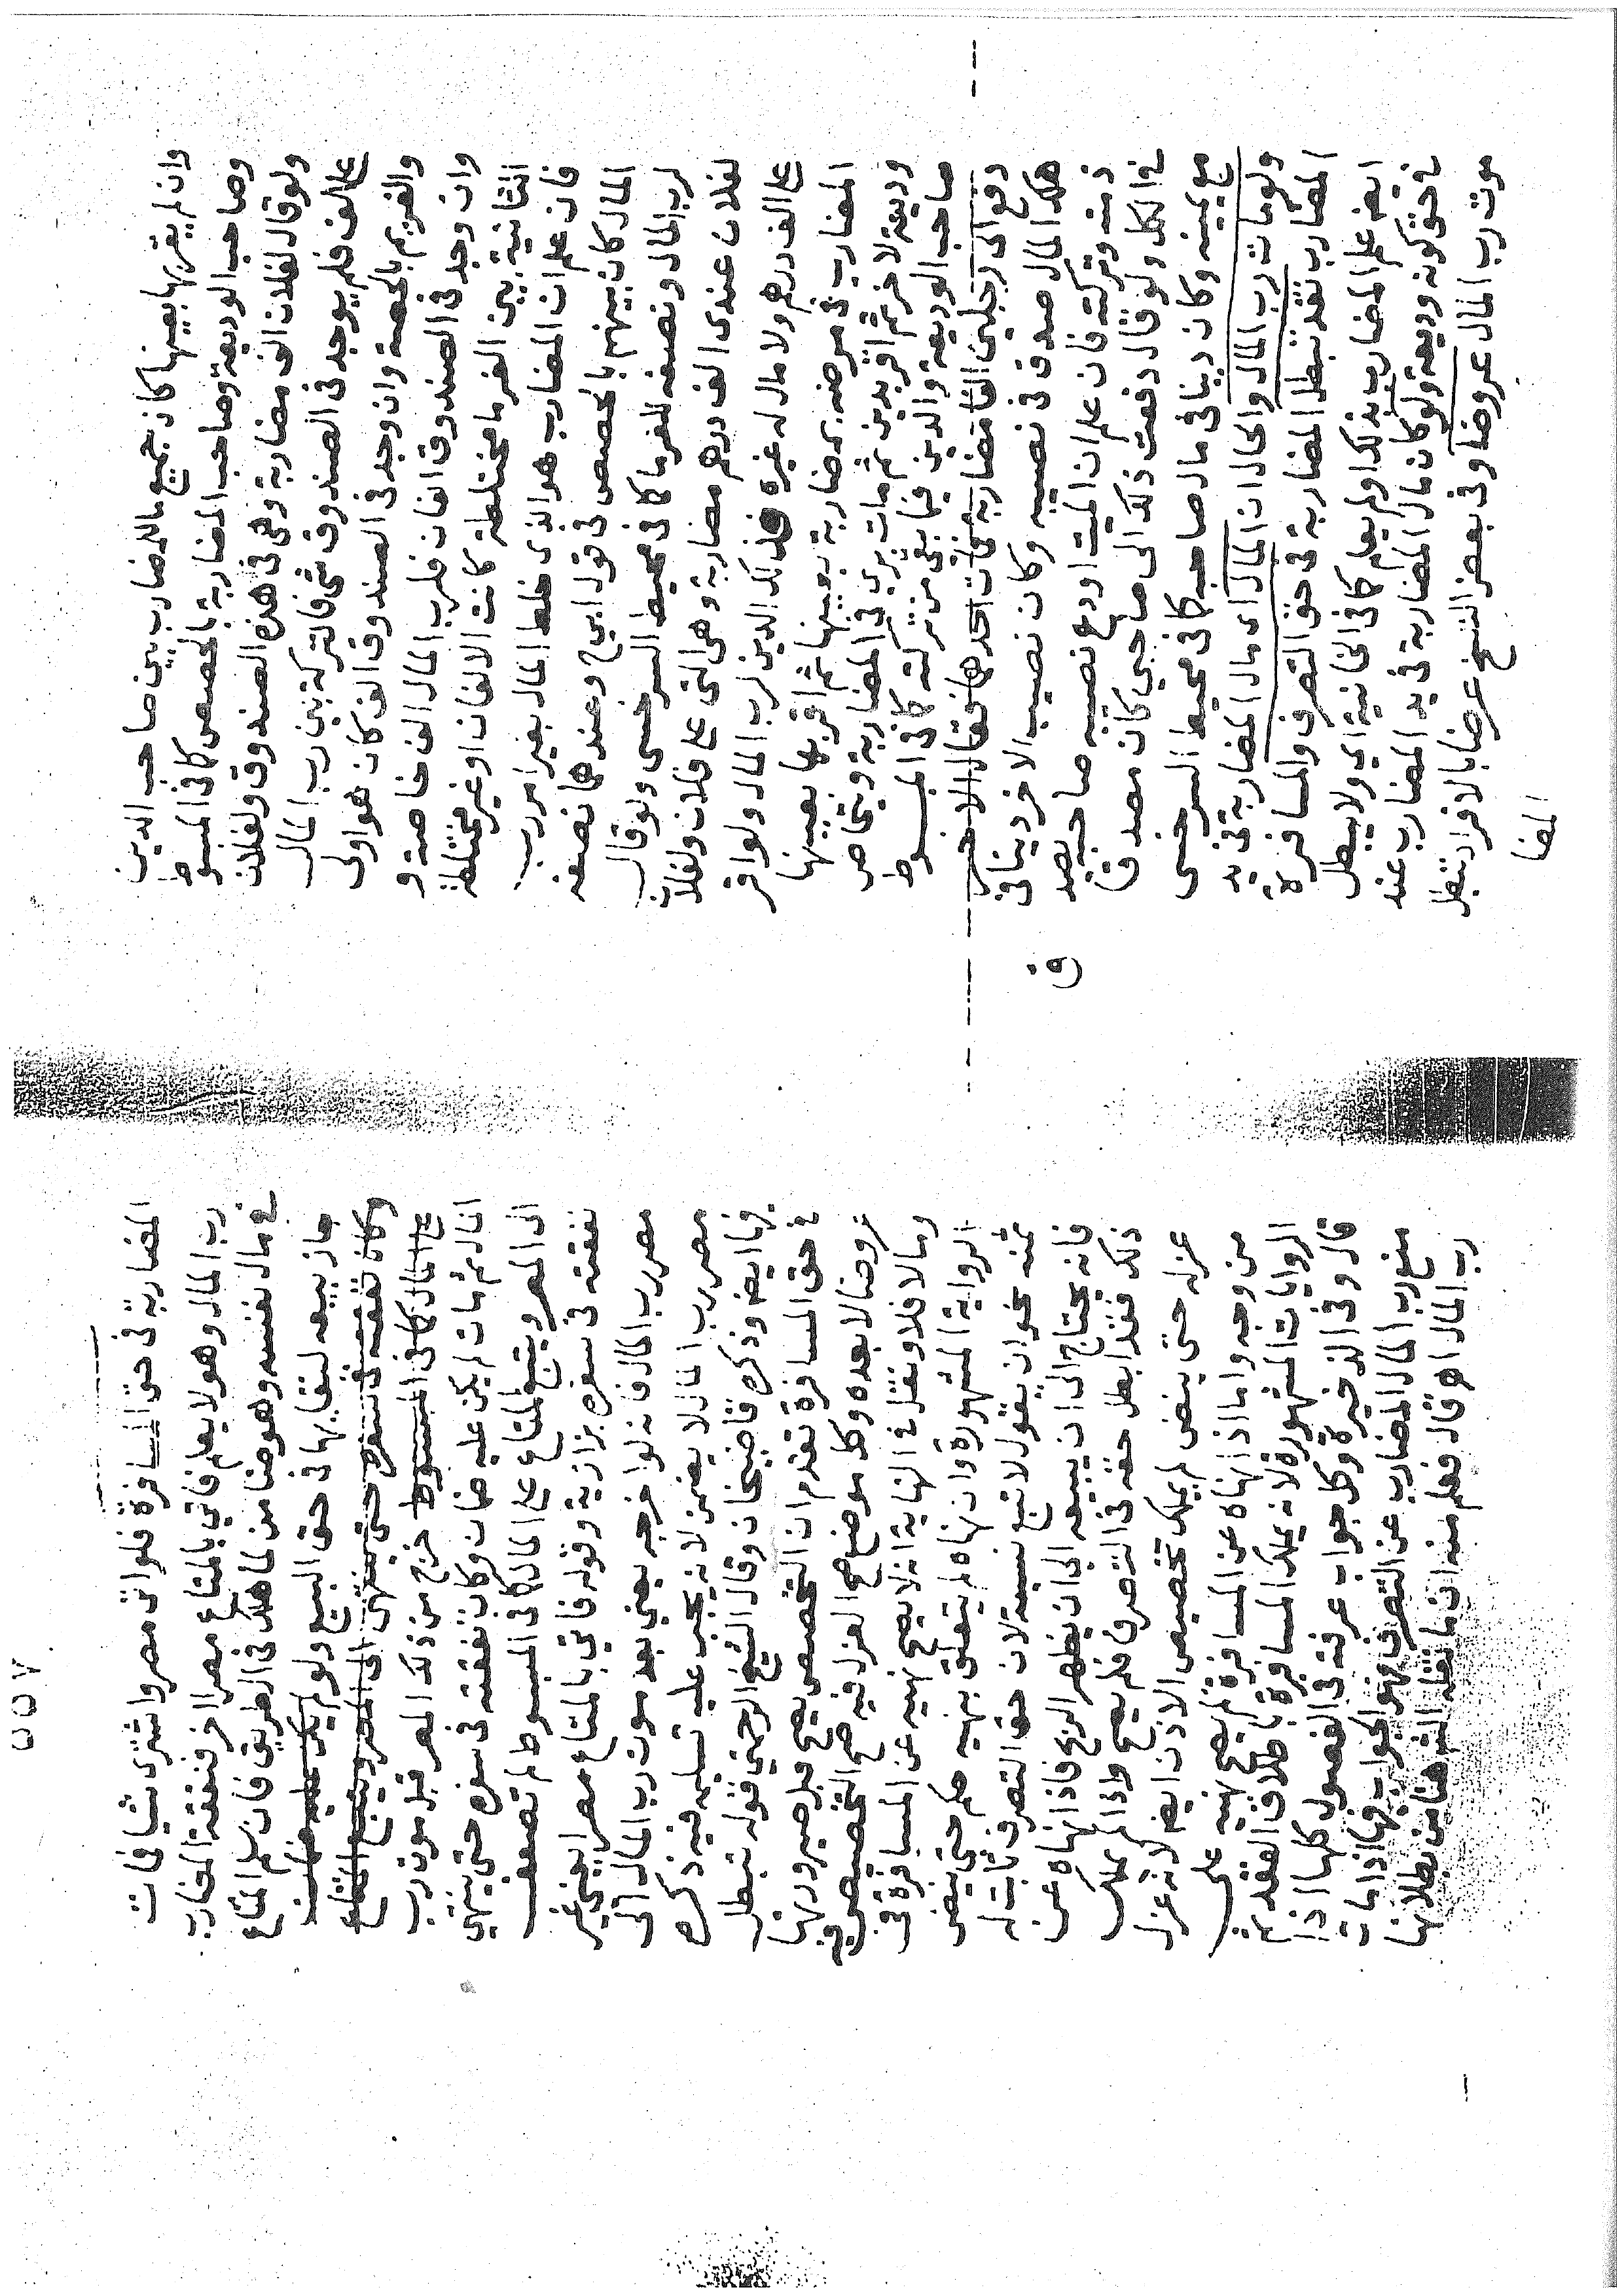 وان لم يقر بها بعينها كان جميع ما للمضارب بين صاحب الدين
وصاحب الوديعة وصاحب المضاربة بالحصص كا فى المبسوط
ولو قال لفلان الف مضاربة وهى فى هذه الصندوق ولفلان
على الف فلم يوجد فى الصندوق شى فالتركة بين رب المال
والغريم بالحصة وان وجد فى الصندوق الف كان هو اولى
وان وجد فى الصندوق الفان فلرب المال الف خاصة و
الثانية بين الغرما مختلطة كانت الالفان او غير مختلطة
فان علم ان المضارب هو الذى خلط المال بغير امر رب
المال كان بينهم بالحصص فى قول ابى ح وعندهما نصفه
لرب المال ونصفه للغرما كا فى محيط السرخسى ولو قال
لفلان عندى الف درهم مضاربة وهى التى على فلان ولفلان
على الف درهم ولا مال له غيره فذلك الدين لرب المال ولو اقر
المضارب فى مرضه بمضاربة بعينها ثم اقر بها بعينها
وديعة لاخر ثم اقر بدين ثم مات برى فى المضاربة ويتحاص
صاحب الوديعة والدين فيما بقى من تركته كا فى المبسوط
دفع الى رجلين الفا مضاربة فمات احدهما فقال الاخر
هلك المال صدق فى نصيبه وكان نصيب الاخر دينا فى
ذمته وتركته فان علم ان الميت اودع نصيبه صاحبه يصد
فى الكل ولو قال دفعت ذلك الى صاحبي كان مصدقا
مع يمينه وكان دينا فى مال صاحبه كا فى محيط السرخسى
ولو مات رب المال والحال ان المال اى مال المضاربة فى يد
المضارب نقد تبطل المضاربة فى حق التصرف والمسافرة
ايض علم المضارب بذلك او لم يعلم كا فى الخانية اي ولا يبطل
فى حق كونه وديعة ولو كان مال المضاربة فى يد المضارب عند
موت رب المال عروضا وفى بعض النسخ عرضا بالافراد تبطل
المضا
ق
٧٥٥
المضاربة فى حق المسافرة فلو اتى مصر واشترى شيا فمات
رب المال وهو لا يعلم فاتي بالمتاع مصرا اخر فنفقة المضارب
فى مال نفسه وهو ضامن لما هلك فى الطريق فان سلم المتاع
جاز بيعه لبقايها فى حق البيع ولو
خرج من ذلك المصر قبل موت رب
المال ثم مات لم يكن عليه ضمان وكان نفقته فى سفره حتى ينتهي
الى المصر ويبيع المتاع على المال كا فى المبسوط لم تصعف
نفقته فى سفره بزازية وقوله فاتي بالمتاع مصرا يعني غير
مصر رب المال فانه لو اخرجه يعني بعد موت رب المال الى
مصر رب المال لا يضمن لانه يجب عليه تسليمه فيه ذكره
فيها ايض وذكره قاضيخان وقال الشيخ الرحمتي قوله تبطل
فى حق المسافرة تقدم ان التخصيص يصح قبل صيرورتها
عروضا لا بعده وكل موضع صح العزل فيه صح التخصيص فيه
وما لا فلا ونقل فى النهاية انه لا يصح نهيه عن المسافرة فى
الرواية المشهورة وان نهاه لم يتعلق بنهيه حكم حتى ينض
ثمنه نحو ان يقول لا تبع نسيئة لان حق التصرف ثابت له
فانه يحتاج الى ان يبيعه الى ان يظهر الربح فاذا نهاه عن
ذلك فقد ابطل حقه فى التصرف فلم يصح واذا لم يملك
عزله حتى ينض لم يملك تخصيص الاذن ايض لانه عزل
من وجه واما اذا نهاه عن المسافرة لم يصح نهيه على
الروايات المشهورة لانه يملك المسافرة باطلاق العقد
قال وفى الذخيرة وكل جواب عرفته فى الفصول كلها اذا
منع رب المال المضارب عن التصرف فهو الجواب فيما اذا مات
رب المال اهـ قال فعلم منه ان ما نقله الش هنا من بطلانها